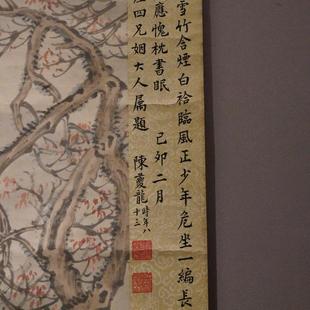 雪竹含煙白袷臨風正少年危坐一編長
應愧枕書眠 己卯二月
四兄姻大人属題 陳夔龍時年八十三